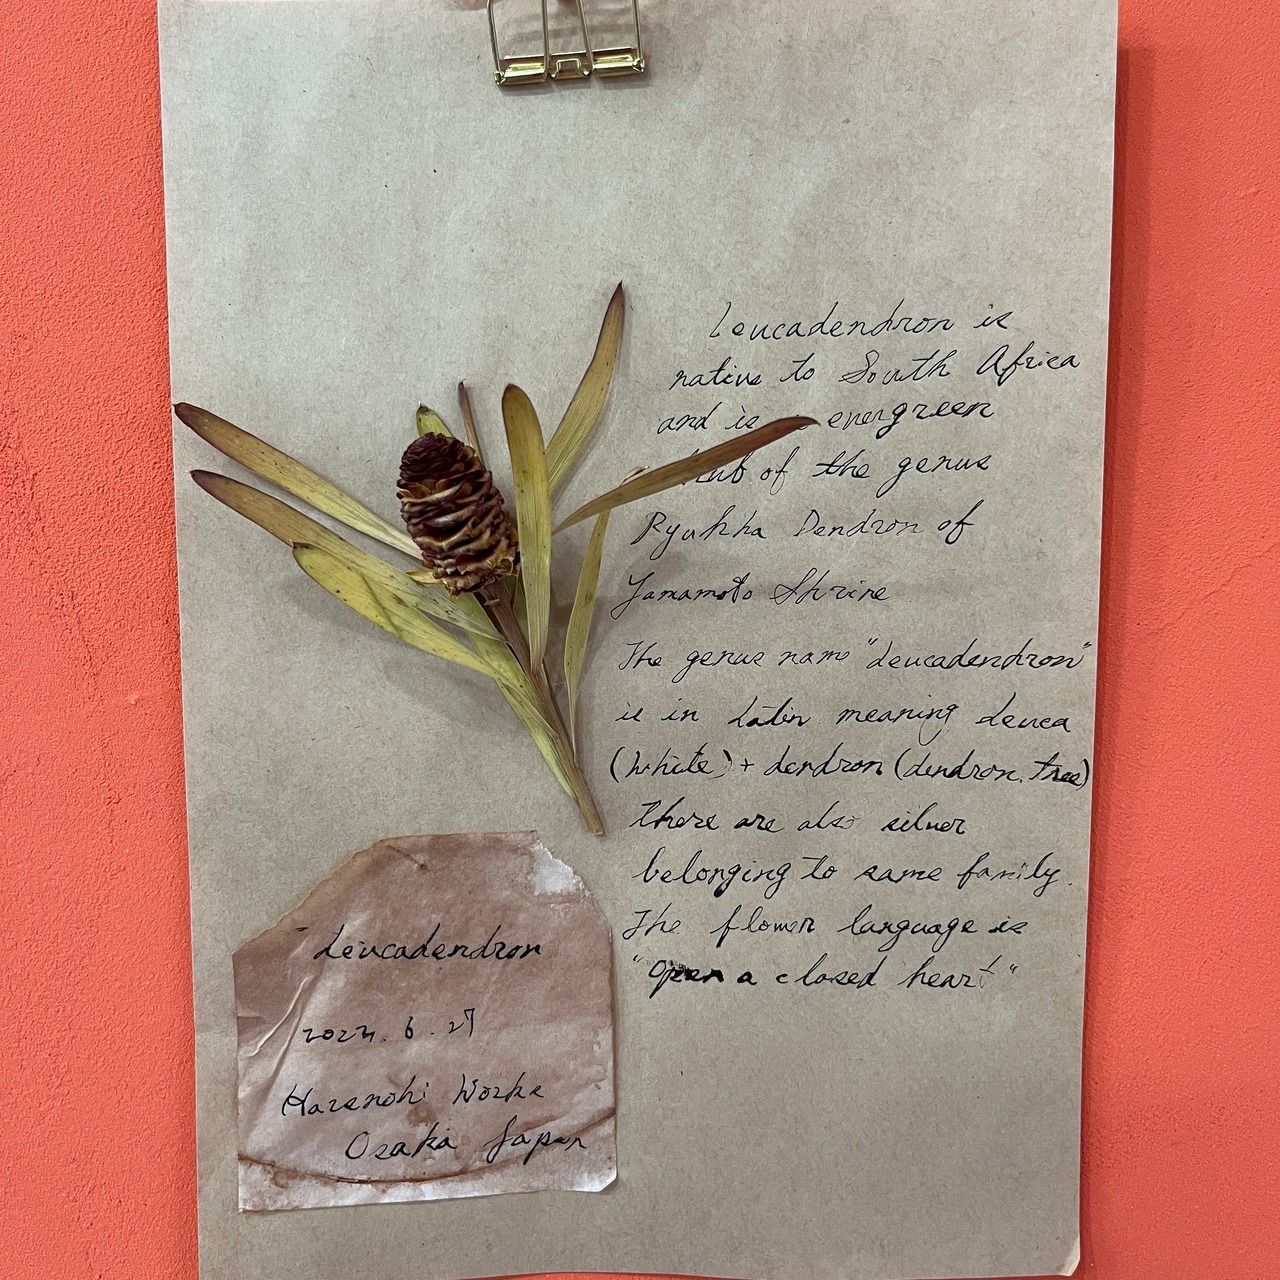 Leucadendron is
native to South Africa
and is evergreen
of the genus
Ryukha Dendron of
Yamamoto Shrine
The genus name "Leucadendron"
is in Latin meaning Leuca
(white) + dendron (dendron, tree)
There are also silver
belonging to same family.
The flower language is
"Open a closed heart"
Leucadendron
6.27
Harenohi Works
Osaka Japan